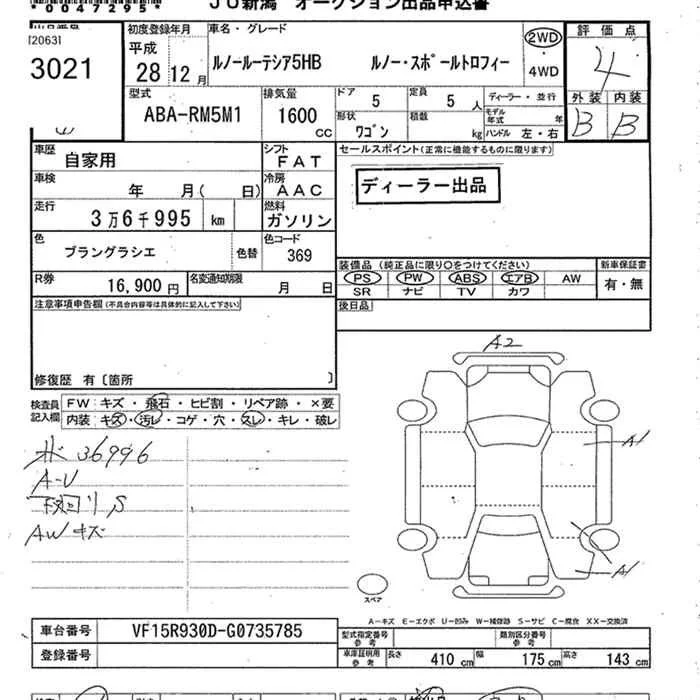 *0047295*
JU新潟 オークション出品申込書
[2063]
3021
初度登録年月
平成
28 12 月
車名・グレード
ルノールーテシア5HB ルノー・スポールトロフィー
2WD
4WD
評価点
4
外装 内装
B B
型式
ABA-RM5M1
排気量
1600 cc
ドア 5
定員 5 人
形状
ワゴン
積数
kg
ディーラー・並行
モデル年式 年
ハンドル 左・右
車歴 自家用
シフト
FAT
セールスポイント(正常に機能するものに限ります)
車検 年 月( 日)
冷房
AAC
ディーラー出品
走行 3万6千995 km
燃料
ガソリン
色 ブラングラシエ 色替
色コード
369
装備品 (純正品に限り○をつけてください)
新車保証書
PS PW ABS エアB AW
有・無
SR ナビ TV カワ
R券 16,900 円
名変通知期限 月 日
後日品
注意事項申告欄(不具合内容等は具体的に記入して下さい)
修復歴 有〔箇所 〕
検査員記入欄
FW:キズ・飛石・ヒビ割・リペア跡・×要
内装:キズ・汚レ・コゲ・穴・スレ・キレ・破レ
36996
A-U
S
AWキズ
A2
A1
A1
スペア
A-キズ E-エクボ U-凹み W-補修跡 S-サビ C-腐食 XX-交換済
車台番号 VF15R930D-G0735785
登録番号
型式指定番号 参考
類別区分番号 参考
車庫証明用 参考
長さ 410 cm 幅 175 cm 高さ 143 cm